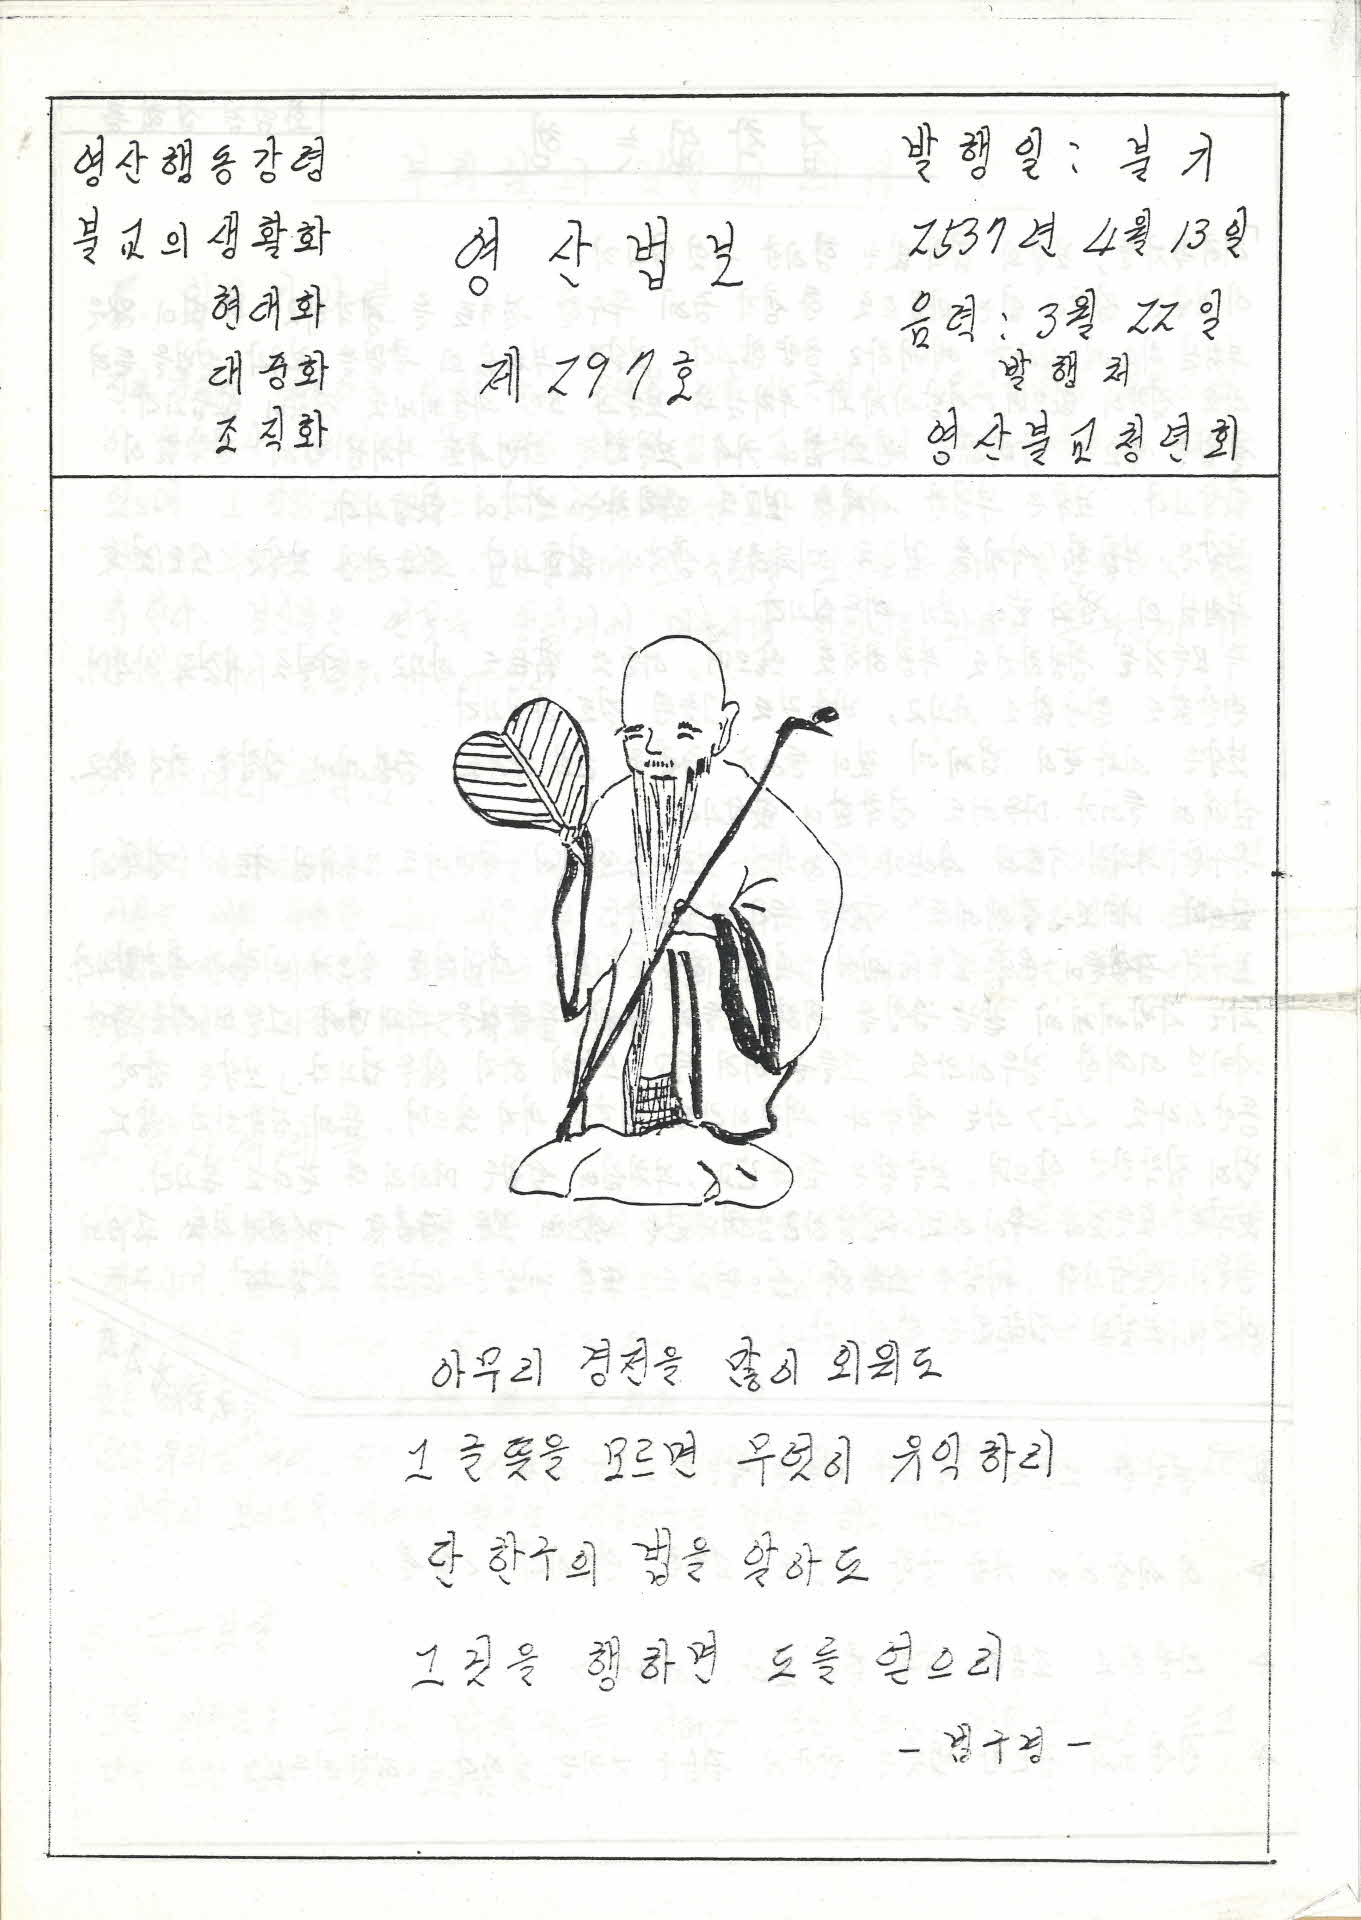 영산행동강령
불교의 생활화
현대화
대중화
조직화
영산법보
제 297호
발행일 : 불기
2537년 4월 13일
음력 : 3월 22일
발행처
영산불교청년회
아무리 경전을 많이 외워도
그 글 뜻을 모르면 무엇이 유익하리
단 한구의 법을 알아도
그것을 행하면 도를 얻으리
- 법구경 -